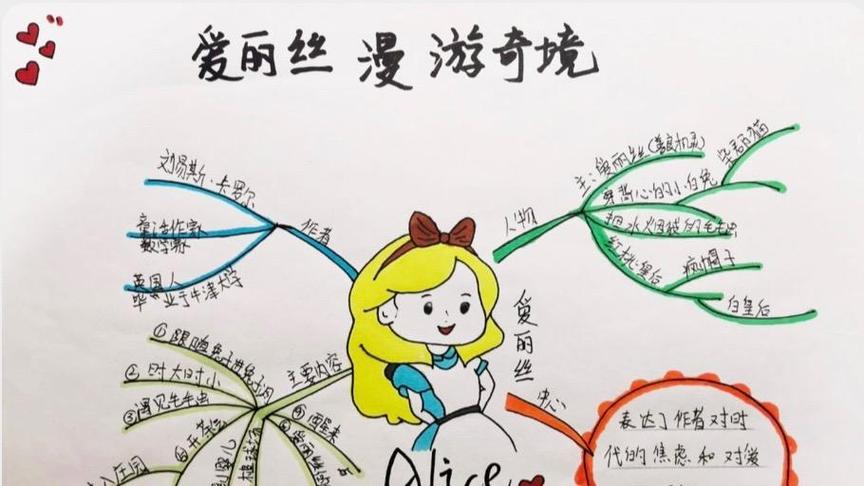 爱丽丝漫游奇境
作者
刘易斯·卡罗尔
童话作家
数学家
英国人
毕业于牛津大学
人物
主:爱丽丝(善良机灵)
穿背心的小白兔
柴郡猫
抽水烟袋的毛毛虫
红桃皇后
疯帽子
白皇后
爱丽丝
主要内容
①跟随兔子进兔子洞
②时大时小
③遇见毛毛虫
开茶会
⑨醒来
中心
表达了作者对时
代的焦虑和对爱
Alice